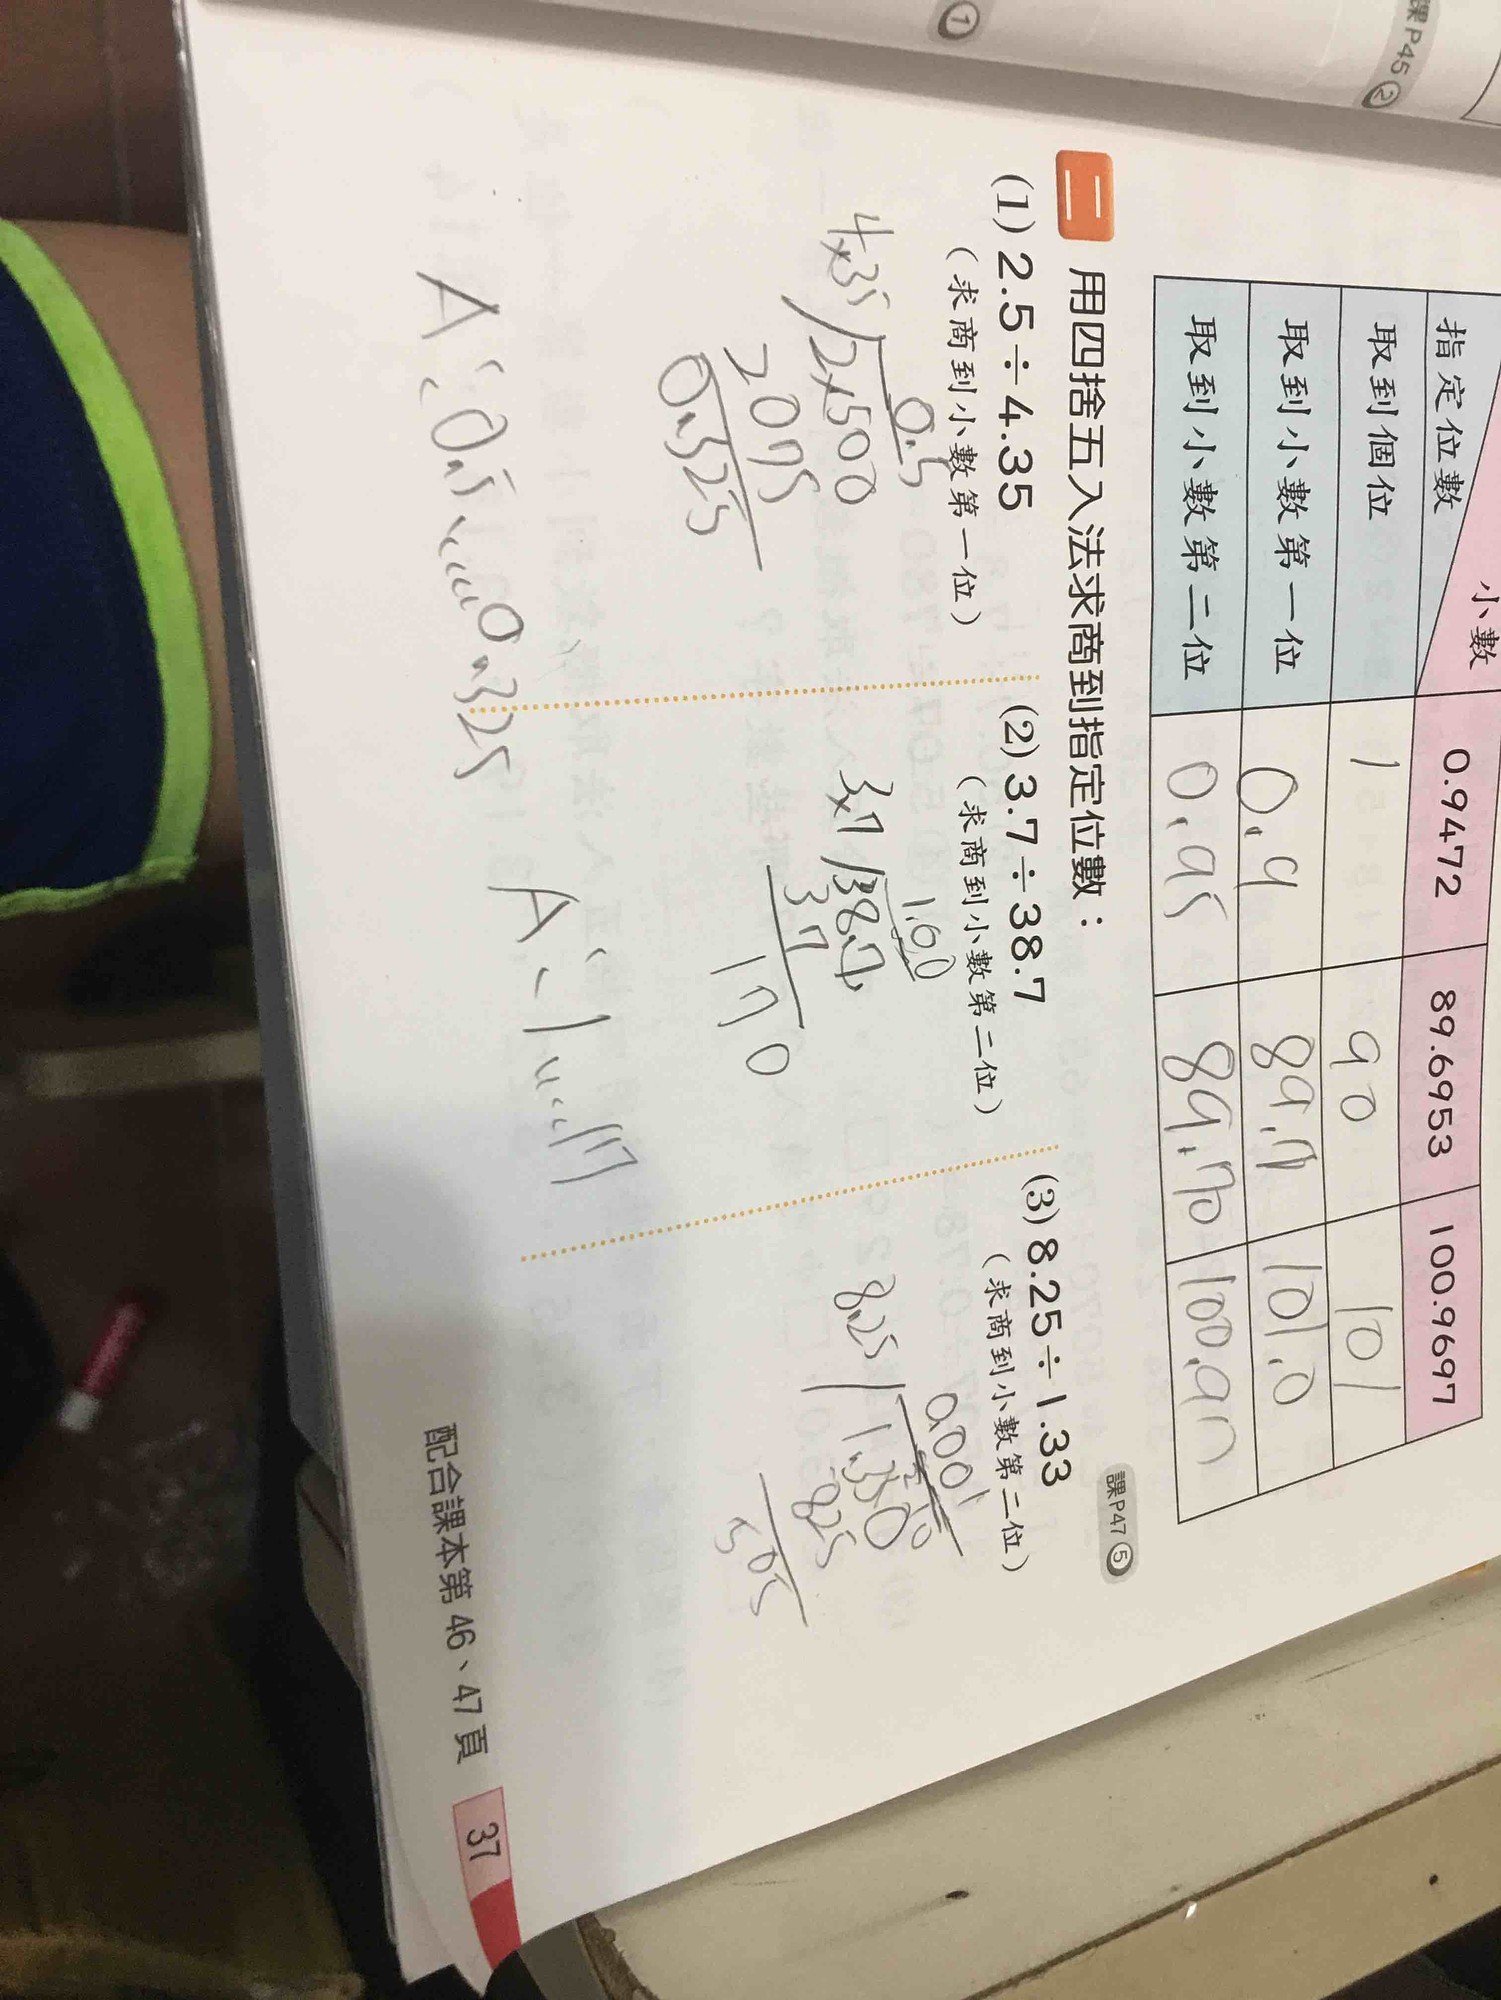 課P45②
①
小數
指定位數
0.9472
89.6953
100.9697
取到個位
1
90
101
取到小數第一位
0.9
89.7
101.0
取到小數第二位
0.95
89.70
100.97
二 用四捨五入法求商到指定位數：
課P47⑤
(1) 2.5÷4.35
（求商到小數第一位）
0.5
2075
0.325
A：0.5……0.325
(2) 3.7÷38.7
（求商到小數第二位）
1.00
37
170
A：1……17
(3) 8.25÷1.33
（求商到小數第二位）
0.001
8.25
825
505
配合課本第46、47頁
37